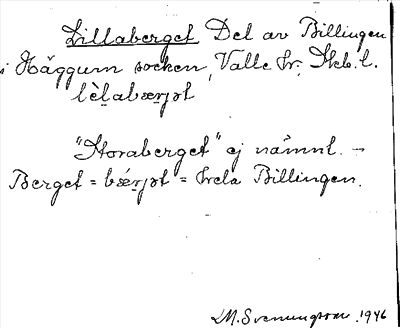 Lillaberget Del av Billingen
i Häggum socken, Valle hr; Skb. l.
lèlabærjət
"Storaberget" ej nämnt. –
Berget = bǽrjət = hela Billingen.
M. Svenungsson. 1946